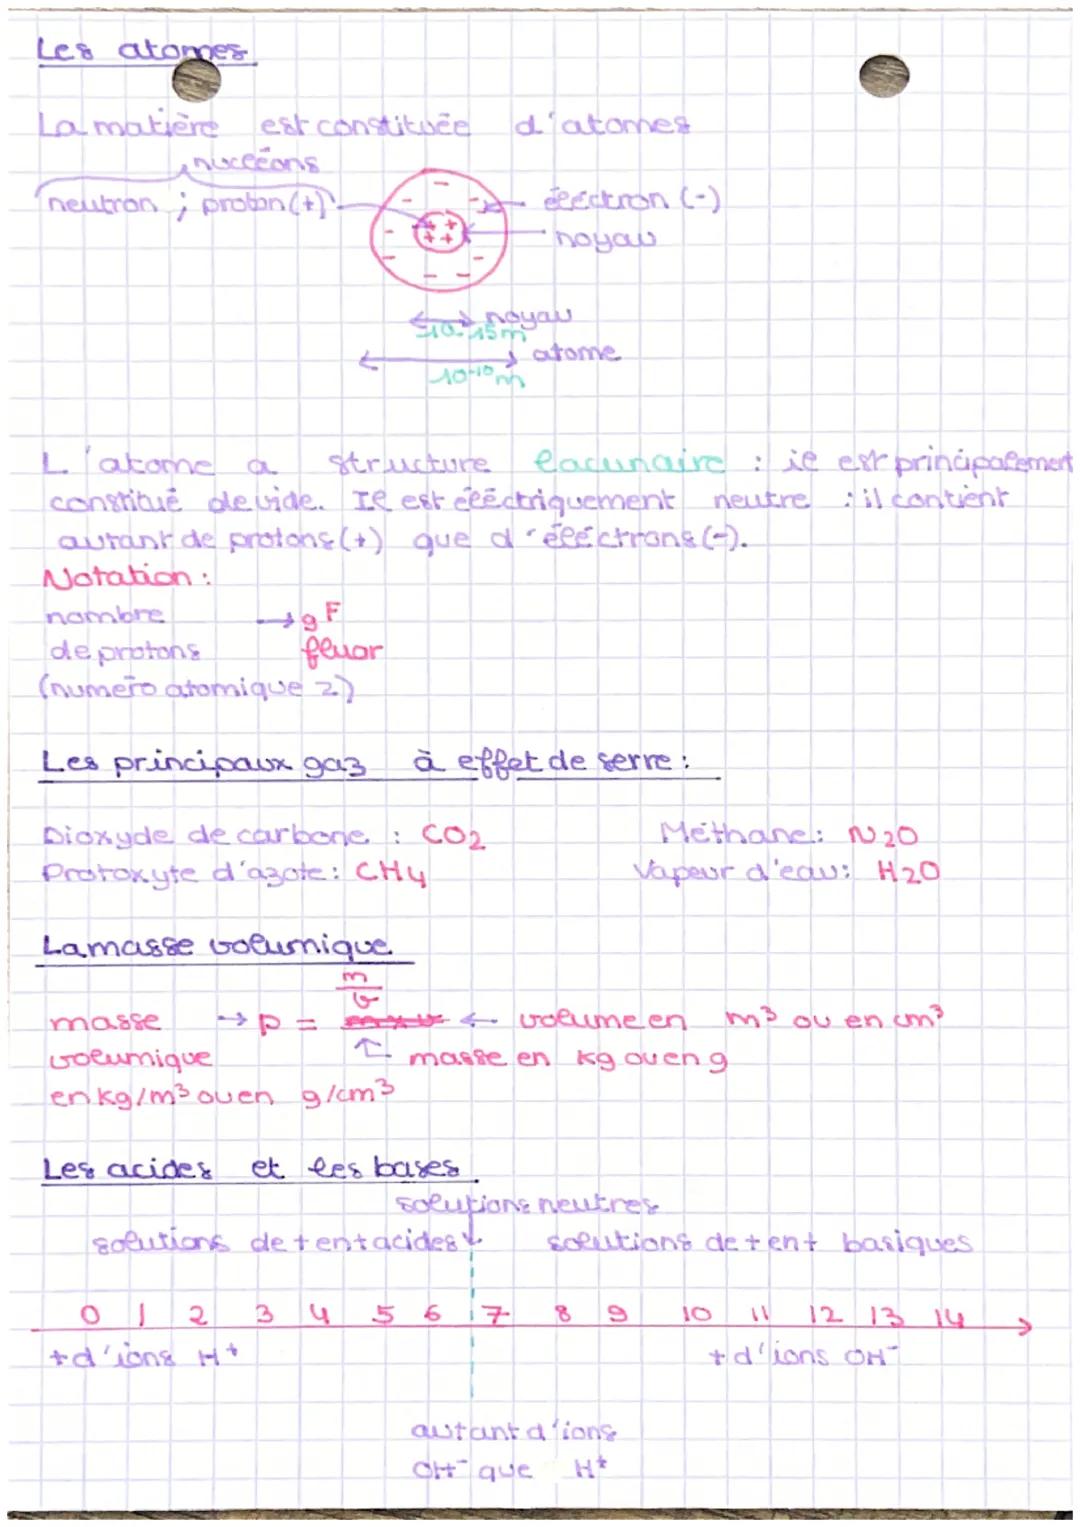 Les atomes
La matière est constituée d'atomes
nucléons
neutron ; proton (+)
électron (-)
noyau
noyau
10-15m
atome
10-10 m
L'atome a structure lacunaire : il est principalement
constitué de vide. Il est éléctriquement neutre : il contient
autant de protons (+) que d'éléctrons (-).
Notation :
nombre → 9F
de protons fluor
(numéro atomique Z)
Les principaux gaz à effet de serre :
Dioxyde de carbone : CO2 Méthane : N2O
Protoxyte d'azote : CH4 Vapeur d'eau : H2O
La masse volumique
m
v
masse → p = ← volume en m³ ou en cm³
volumique ↑ masse en kg ou en g
en kg/m³ ou en g/cm³
Les acides et les bases
solutions neutres
solutions de tent acides solutions de tent basiques
0 1 2 3 4 5 6 7 8 9 10 11 12 13 14
+ d'ions H+ + d'ions OH-
autant d'ions
OH- que H+